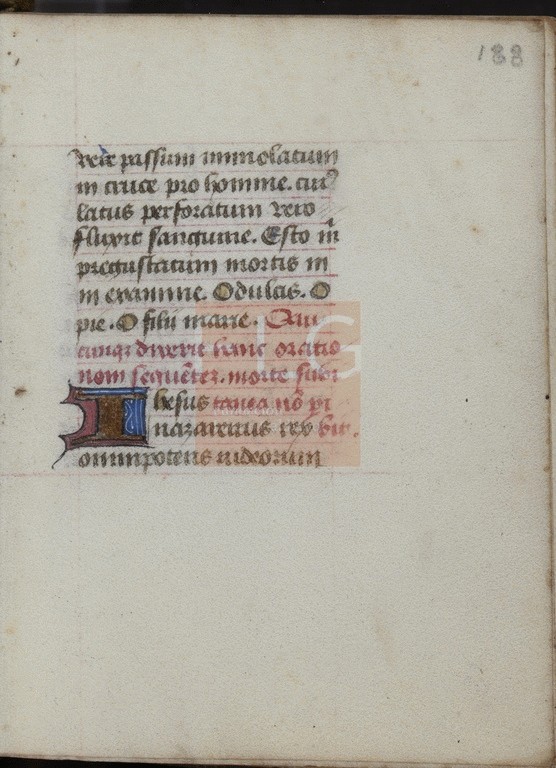 188
vere passum immolatum
in cruce pro homine. cui⁹
latus perforatum vero
fluxit sanguine. Esto n̄
pregustatum mortis in
in examine. O dulcis. O
pie. O filii marie. Qui
cunq; dixerit hanc oratio
nom sequēter. morte subi
Ihesus tanea nō pi
nazarenus rex bit.
omnipotens iudeorum